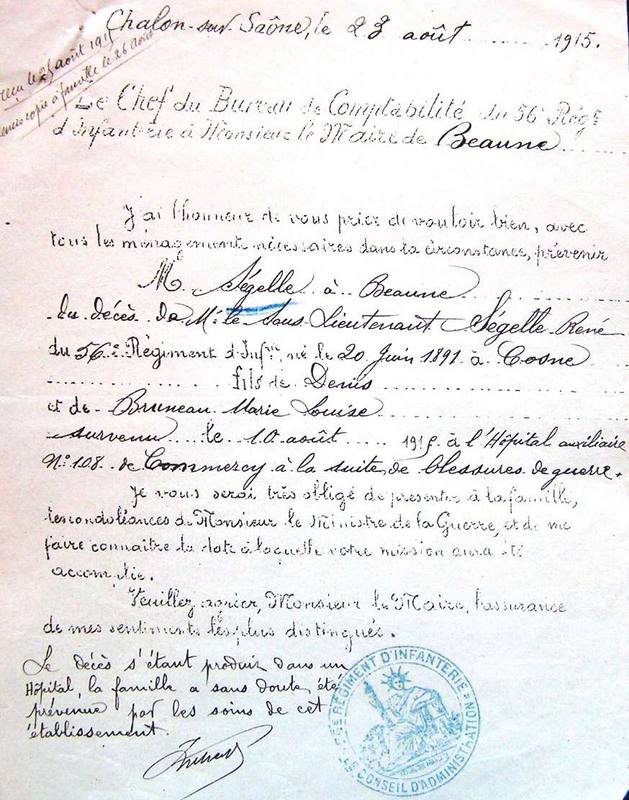 Chalon-sur-Saône, le 23 août 1915.
reçu le 25 août 1915
remis copie à famille le 26 août
Le Chef du Bureau de Comptabilité du 56e Régt
d'Infanterie à Monsieur le Maire de Beaune
J'ai l'honneur de vous prier de vouloir bien, avec
tous les ménagements nécessaires dans la circonstance, prévenir
M. Ségelle à Beaune
du décès de Mr le Sous Lieutenant Ségelle René
du 56e Régiment d'Infrie, né le 20 Juin 1891 à Cosne
fils de Denis
et de Bruneau Marie Louise
survenu le 10 août 1915 à l'Hôpital auxiliaire
No 108 de Commercy à la suite de blessures de guerre.
Je vous serai très obligé de présenter à la famille,
les condoléances de Monsieur le Ministre de la Guerre, et de me
faire connaître la date à laquelle votre mission aura été
accomplie.
Veuillez agréer, Monsieur le Maire, l'assurance
de mes sentiments les plus distingués.
Le décès s'étant produit dans un
Hôpital, la famille a sans doute été
prévenue par les soins de cet
établissement.
RÉGIMENT D'INFANTERIE
LE CONSEIL D'ADMINISTRATION